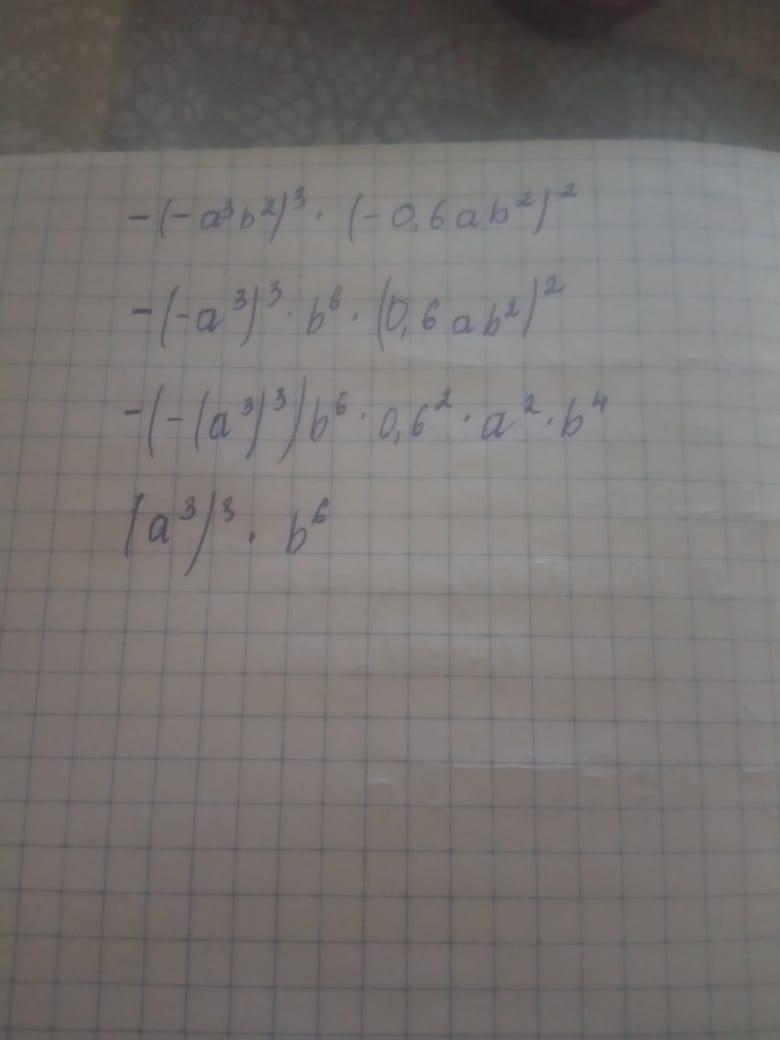 -(-a³b²)³ · (-0,6ab²)²
-(-a³)³ · b⁶ · (0,6ab²)²
-(-(a³)³)b⁶ · 0,6² · a² · b⁴
(a³)³ · b⁶